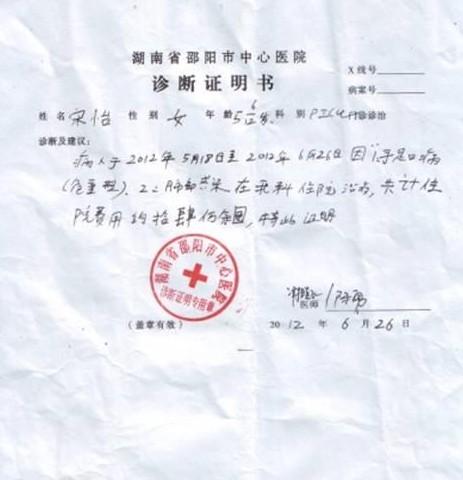 湖南省邵阳市中心医院
诊断证明书
X线号
病案号
姓名 宋怡 性别 女 年龄 科别 PICU 门诊诊治
诊断及建议：
病人于2012年5月18日至2012年6月26日因1.手足口病
(危重型). 2. 肺部感染 在我科住院治疗, 共计住
院费用约拾肆, 特此证明
湖南省邵阳市中心医院
诊断证明专用章
医师
(盖章有效) 2012年6月26日